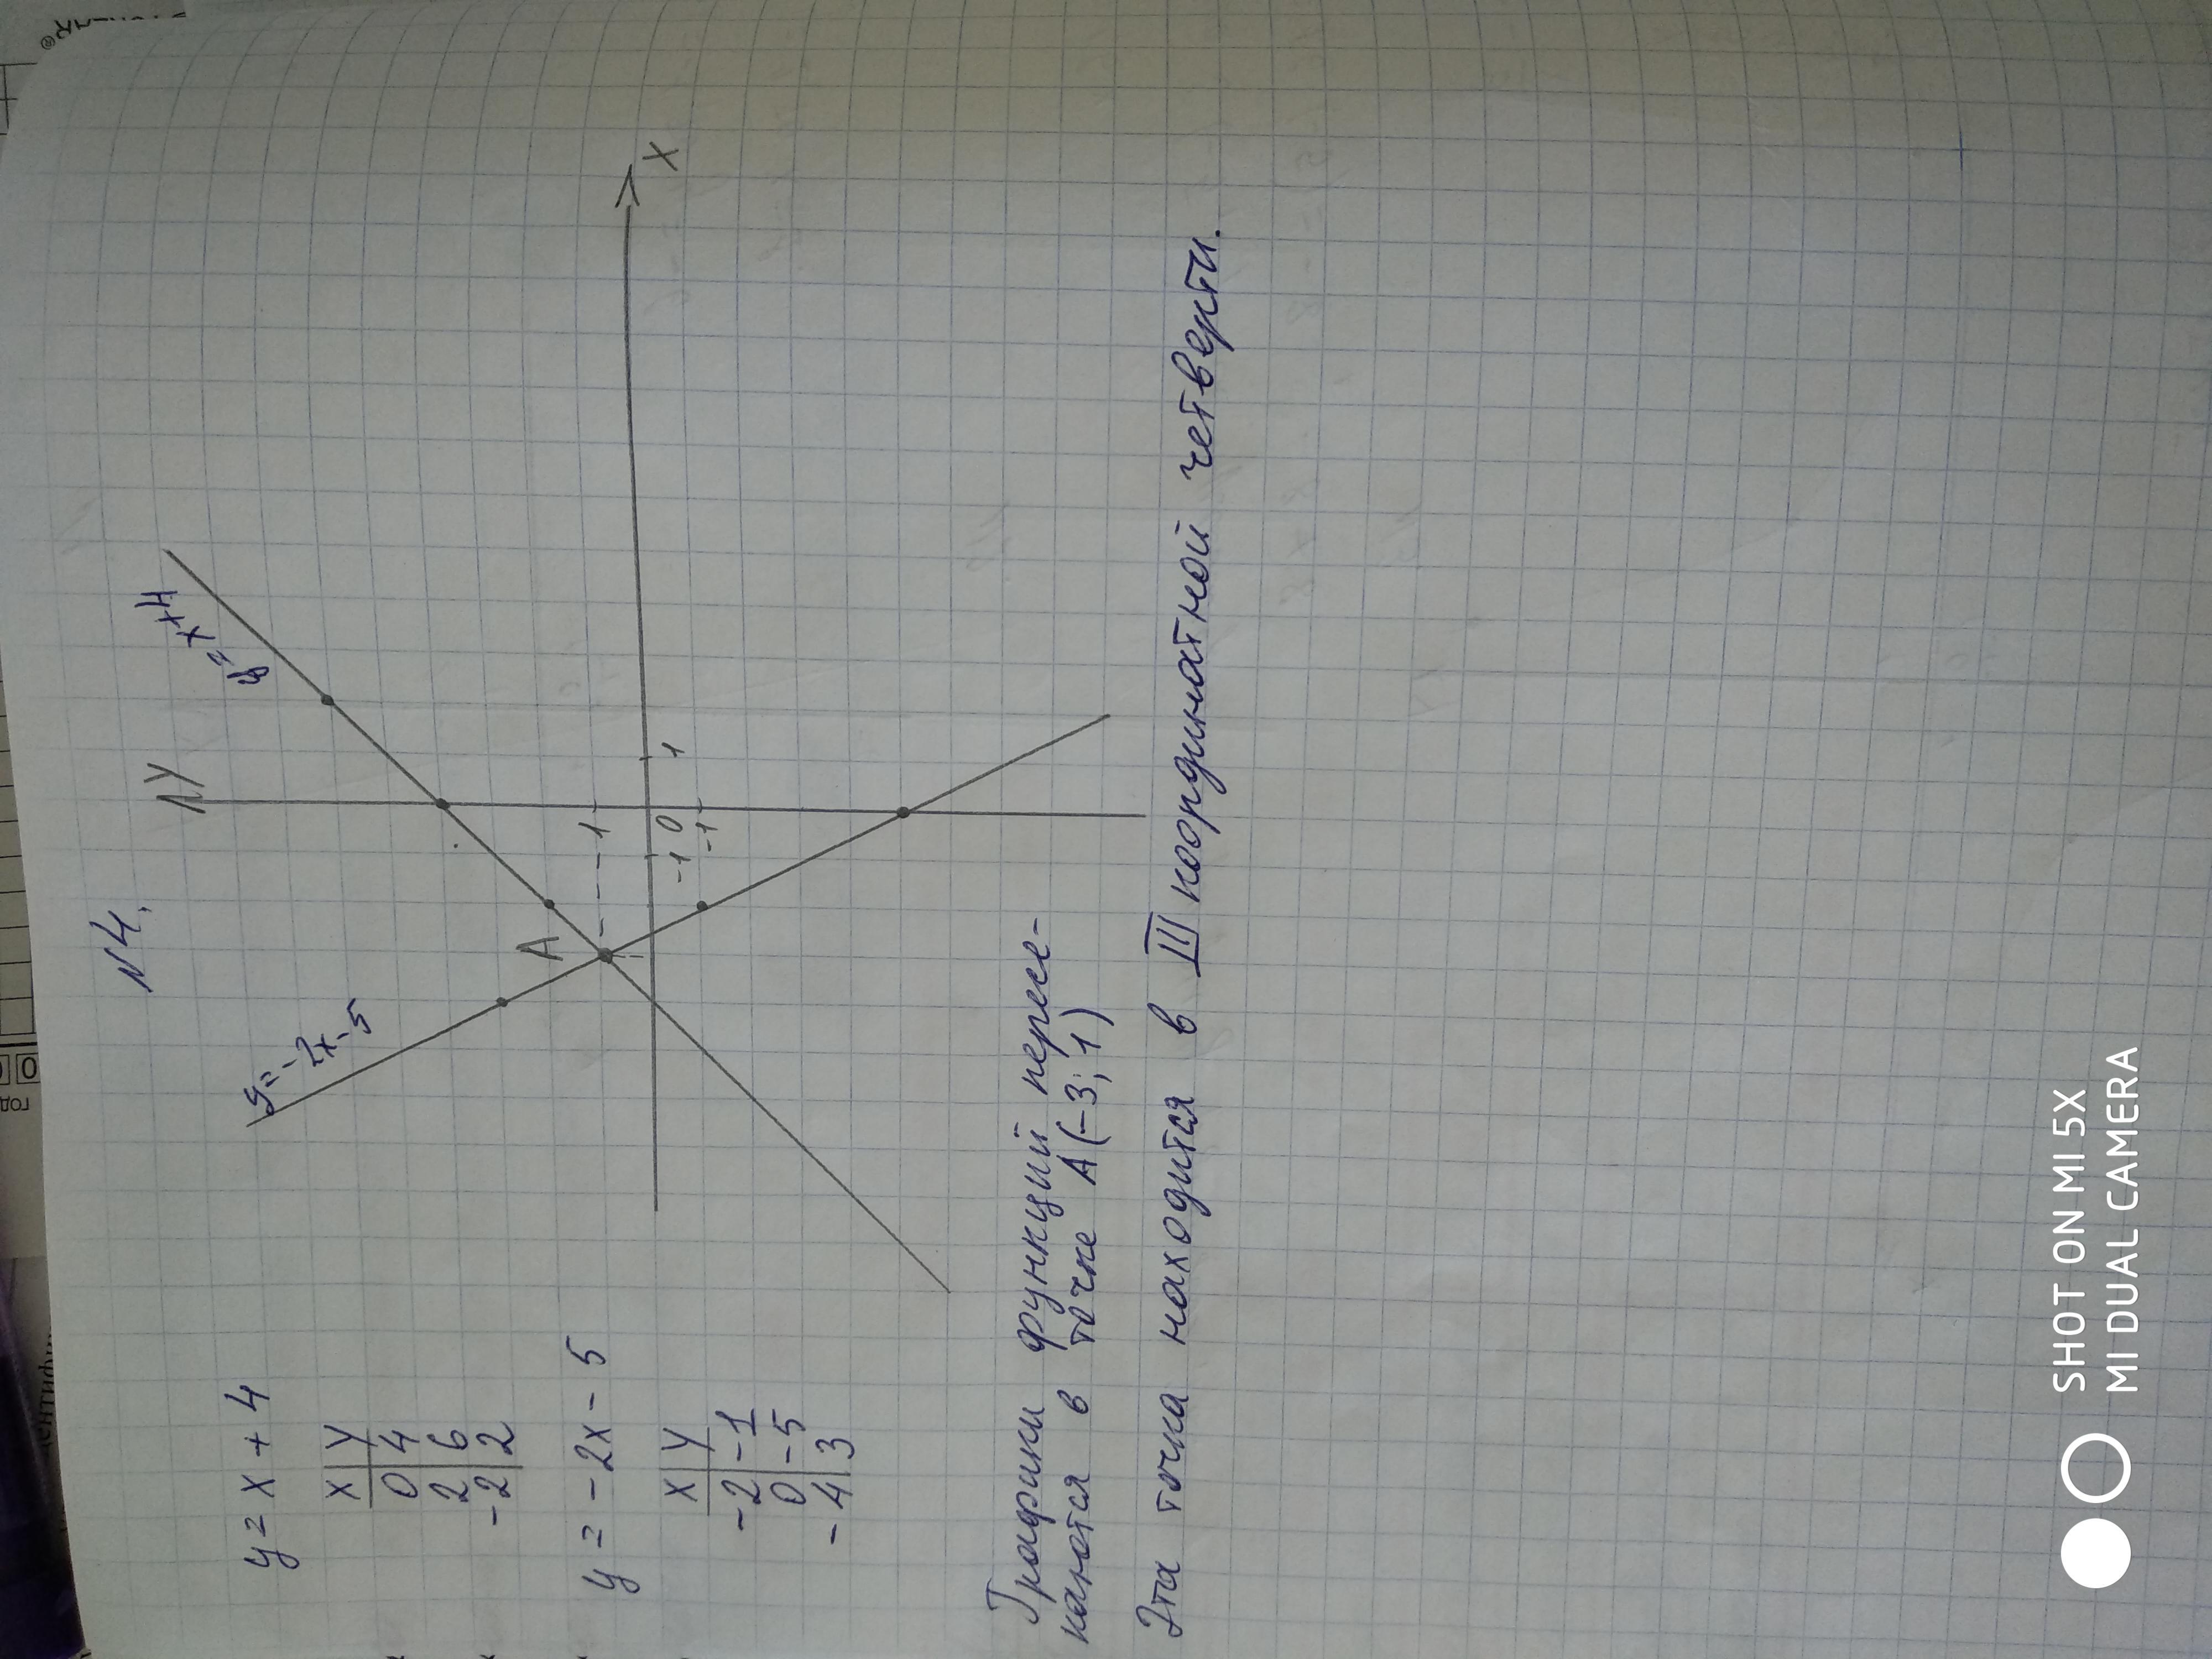 N4.
y = x + 4
x | y
0 | 4
2 | 6
-2 | 2
y = - 2x - 5
x | y
-2 | -1
0 | -5
-4 | 3
y=-2x-5
y=x+4
y
A
x
1
-1 0 1
-1
Графики функций пересе-
каются в точке A (-3; 1)
Эта точка находится в III координатной четверти.
SHOT ON MI 5X
MI DUAL CAMERA